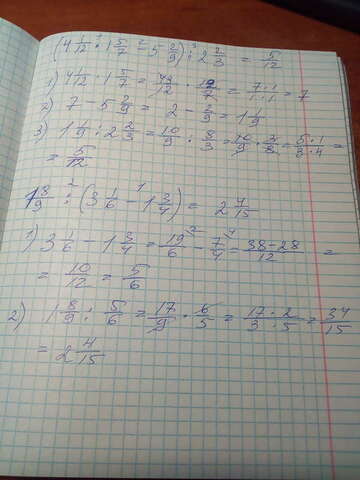 (4 1/12 · 1 5/7 − 5 2/9) : 2 2/3 = 5/12
1) 4 1/12 · 1 5/7 = 49/12 · 12/7 = 7·1/1·1 = 7
2) 7 − 5 2/9 = 2 − 2/9 = 1 1/9
3) 1 1/9 : 2 2/3 = 10/9 : 8/3 = 10/9 · 3/8 = 5·1/3·4 =
= 5/12
1 8/9 : (3 1/6 − 1 3/4) = 2 4/15
1) 3 1/6 − 1 3/4 = 19/6 − 7/4 = 38−28/12 =
= 10/12 = 5/6
2) 1 8/9 : 5/6 = 17/9 · 6/5 = 17·2/3·5 = 34/15
= 2 4/15